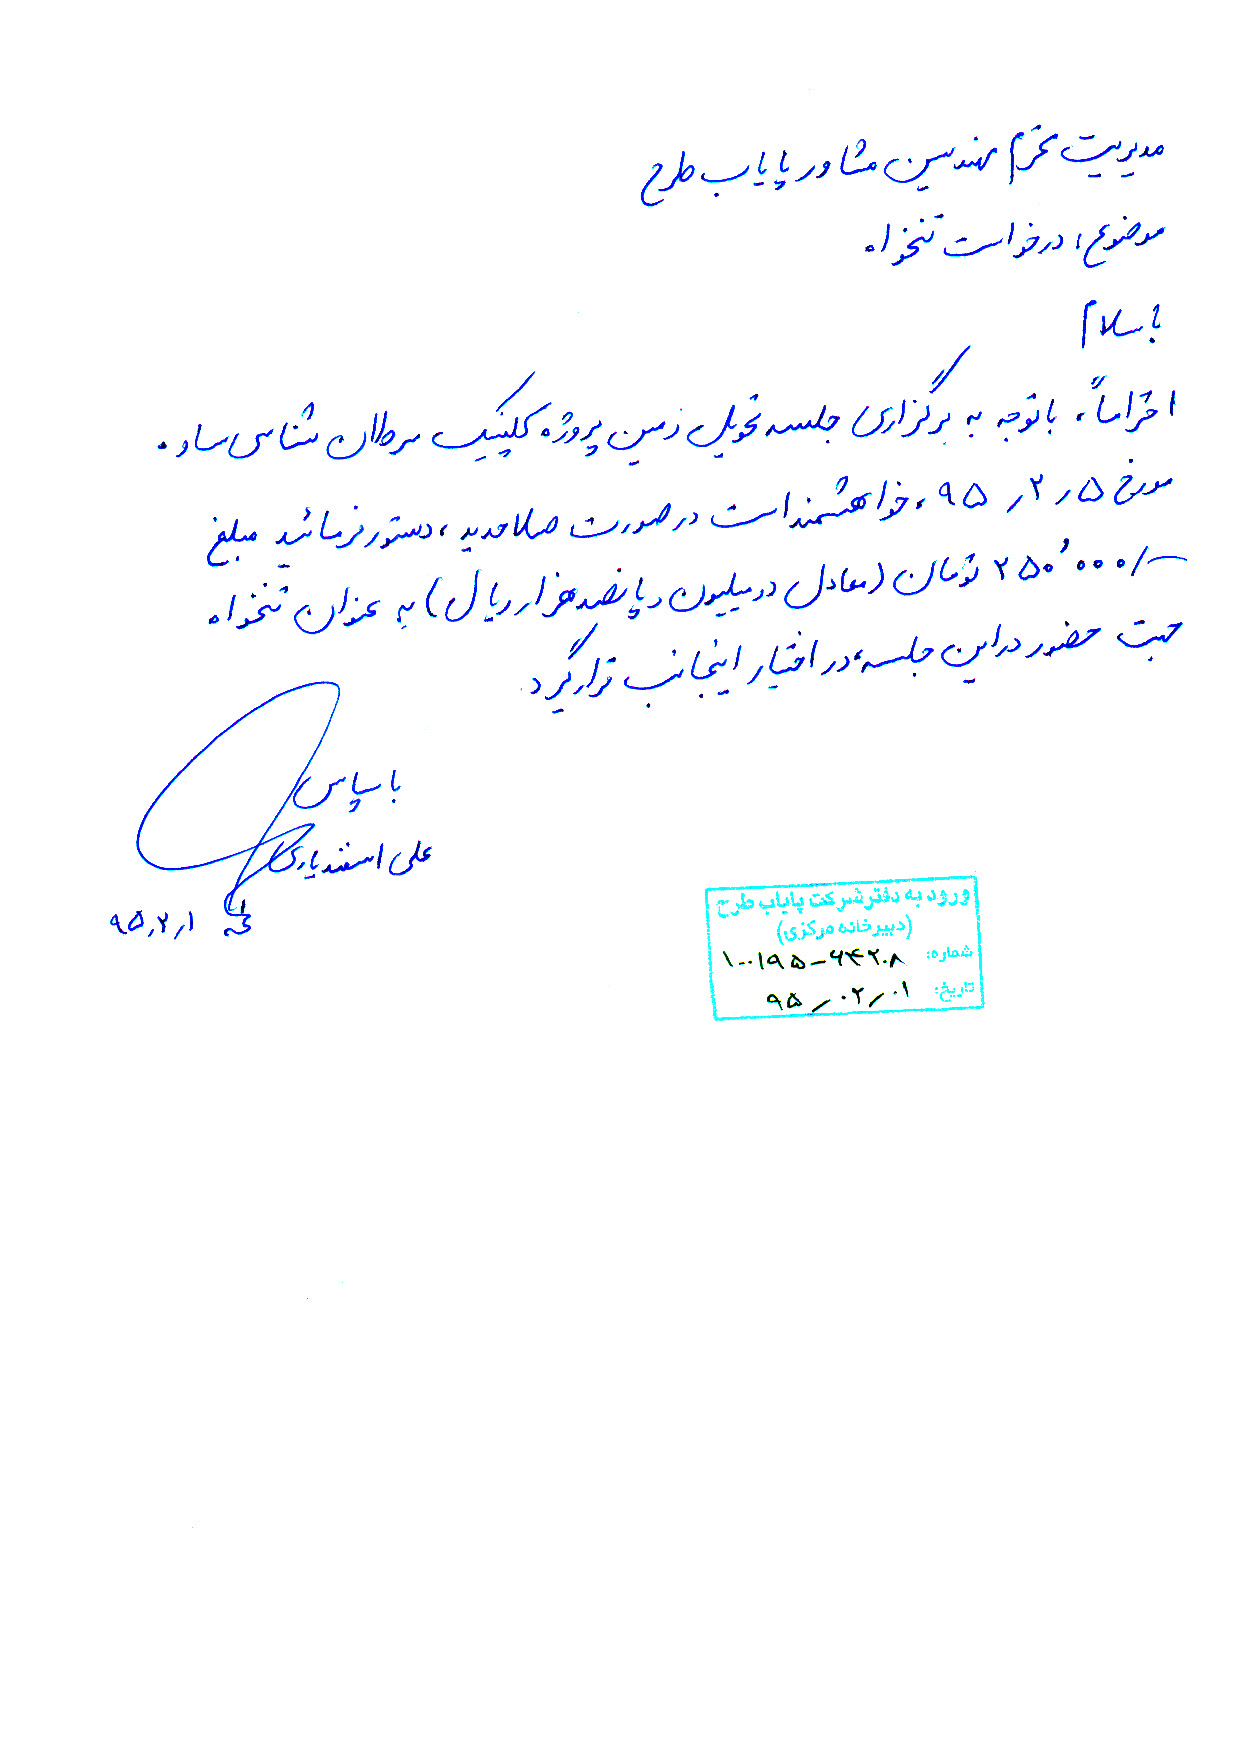 مدیریت محترم مهندسین مشاور پایاب طرح
موضوع: درخواست تنخواه
با سلام
احتراماً، با توجه به برگزاری جلسه تحویل زمین پروژه کلینیک سرطان شناسی ساوه
مورخ ۹۵/۲/۵، خواهشمند است در صورت صلاحدید، دستور فرمائید مبلغ
۲۵۰٬۰۰۰/- تومان (معادل دو میلیون و پانصد هزار ریال) به عنوان تنخواه
جهت حضور در این جلسه، در اختیار اینجانب قرار گیرد.
با سپاس
علی اسفندیاری
۹۵/۲/۱
ورود به دفتر شرکت پایاب طرح
(دبیرخانه مرکزی)
شماره: ۱۰۰/۹۵-۶۴۲۰۸
تاریخ: ۹۵/۰۲/۰۱